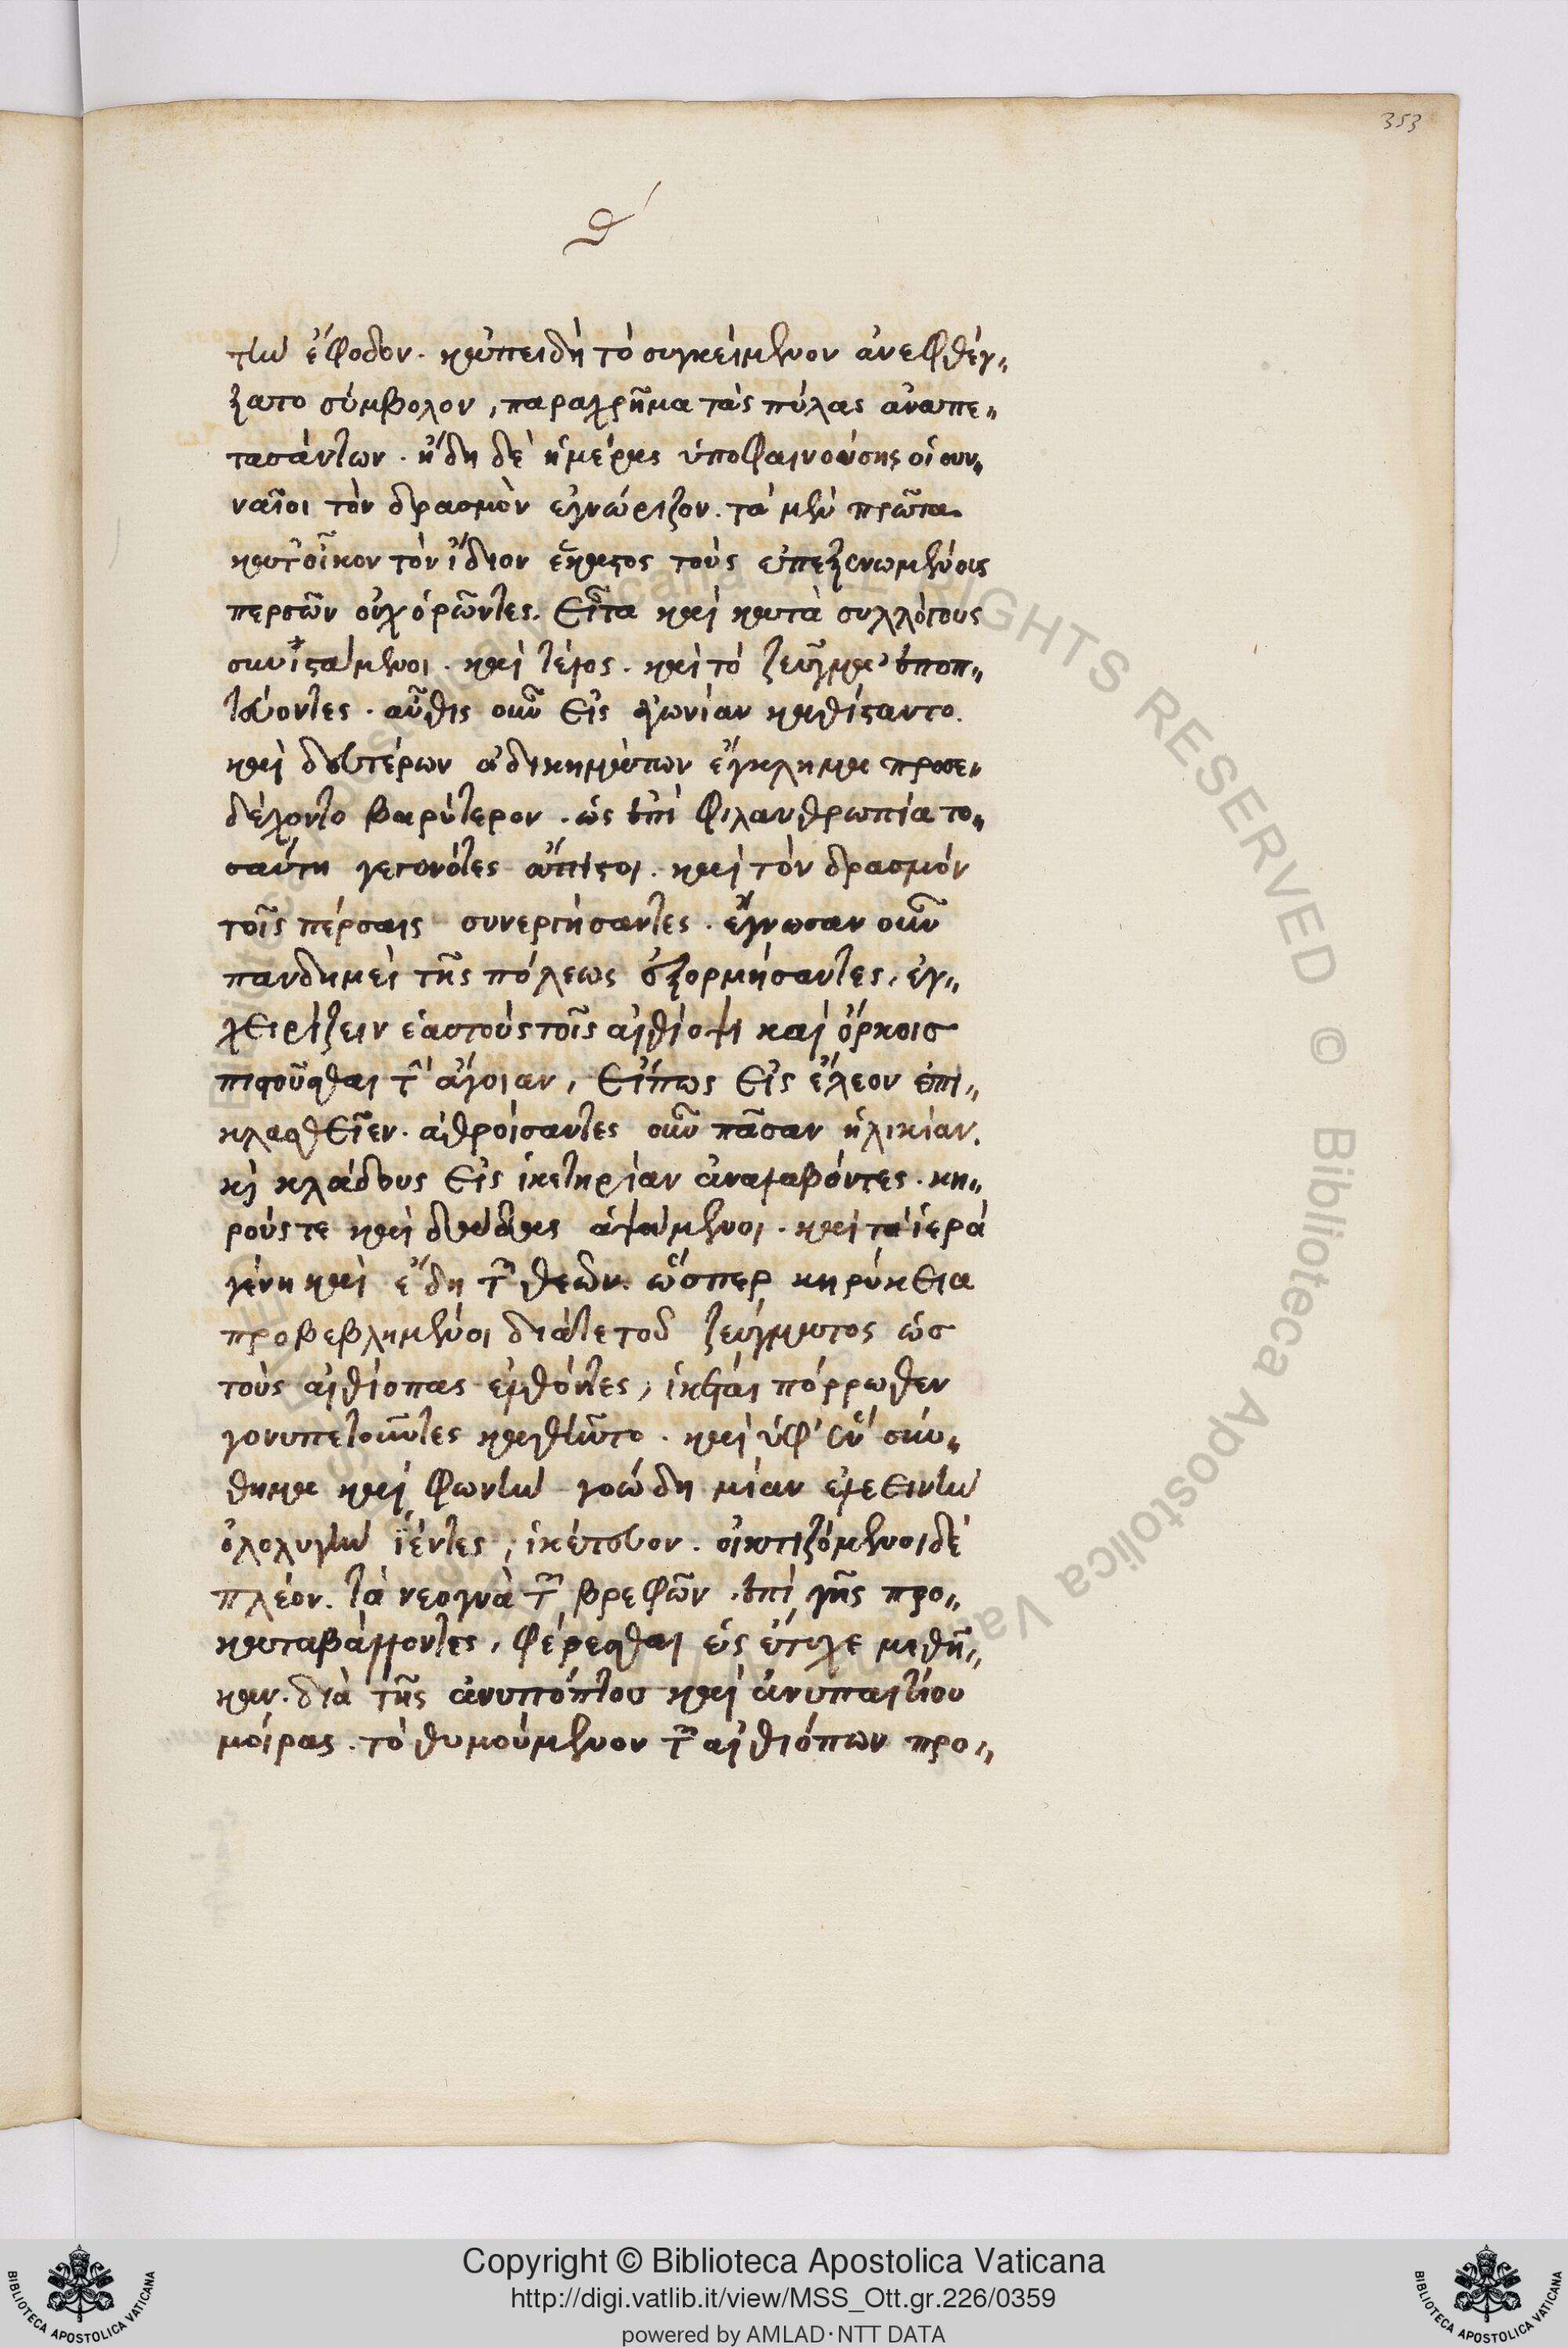 353
θ´
τὴν ἔφοδον. κἀπειδὴ τὸ συγκείμενον ἀνεφθέγ„
ξατο σύμβολον, παραχρῆμα τὰς πύλας ἀναπε„
τασάντων. ἤδη δὲ ἡμέρας ὑποφαινούσης οἱ συη„
ναῖοι τὸν δρασμὸν ἐγνώριζον. τὰ μὲν πρῶτα
κατ' οἶκον τὸν ἴδιον ἕκαστος τοὺς ἐπεξενωμένους
περσῶν οὐχ ὁρῶντες. Εἶτα καὶ κατὰ συλλόγους
συνϊστάμενοι. καὶ τέλος. καὶ τὸ ζεῦγμα ἐποπ„
τεύοντες. αὖθις οὖν Εἰς ἀγωνίαν καθίσταντο.
καὶ δευτέρων ἀδικημάτων ἔγκλημα προσε„
δέχοντο βαρύτερον. ὡς ἐπὶ φιλανθρωπία το„
σαύτη γεγονότες ἄπιστοι. καὶ τὸν δρασμὸν
τοῖς πέρσαις συνεργήσαντες. ἔγνωσαν οὖν
πανδημεὶ τῆς πόλεως ἐξορμήσαντες, ἐγ„
χΕιρίζειν ἑαυτοὺς τοῖς αἰθίοψι καὶ ὅρκοισ
πιστοῦσθαι τὴν ἄγνοιαν, Εἴπως Εἰς ἔλεον ἐπι„
κλασθΕῖεν. ἀθροίσαντες οὖν πᾶσαν ἡλικίαν.
κὶ κλάδους Εἰς ἱκετηρίαν ἀναλαβόντες. κη„
ρούς τε καὶ δᾶδας ἁψάμενοι. καὶ τὰ ἱερὰ
γένη καὶ ἔδη τῶν θεῶν. ὥσπερ κηρύκΕια
προβεβλημένοι διά τε τοῦ ζεύγματος ὡσ
τοὺς αἰθίοπας ἐλθόντες, ἱκέται πόρρωθεν
γονυπετοῦντες καθῆντο. καὶ ὑφ' ἓν σύν„
θημα καὶ φωνὴν γοώδη μίαν ἐλεεινὴν
ὀλολυγὴν ἱέντες, ἱκέτευον. οἰκτιζόμενοι δὲ
πλέον. τὰ νεογνὰ τῶν βρεφῶν. ἐπὶ γῆς προ„
καταβάλλοντες, φέρεσθαι ὡς ἔτυχε μεθῆ„
καν. διὰ τῆς ἀνυπόπτου καὶ ἀνυπαιτίου
μοίρας. τὸ θυμούμενον τῶν αἰθιόπων προ„
BIBLIOTECA APOSTOLICA VATICANA
Copyright © Biblioteca Apostolica Vaticana
http://digi.vatlib.it/view/MSS_Ott.gr.226/0359
powered by AMLAD·NTT DATA
BIBLIOTECA APOSTOLICA VATICANA